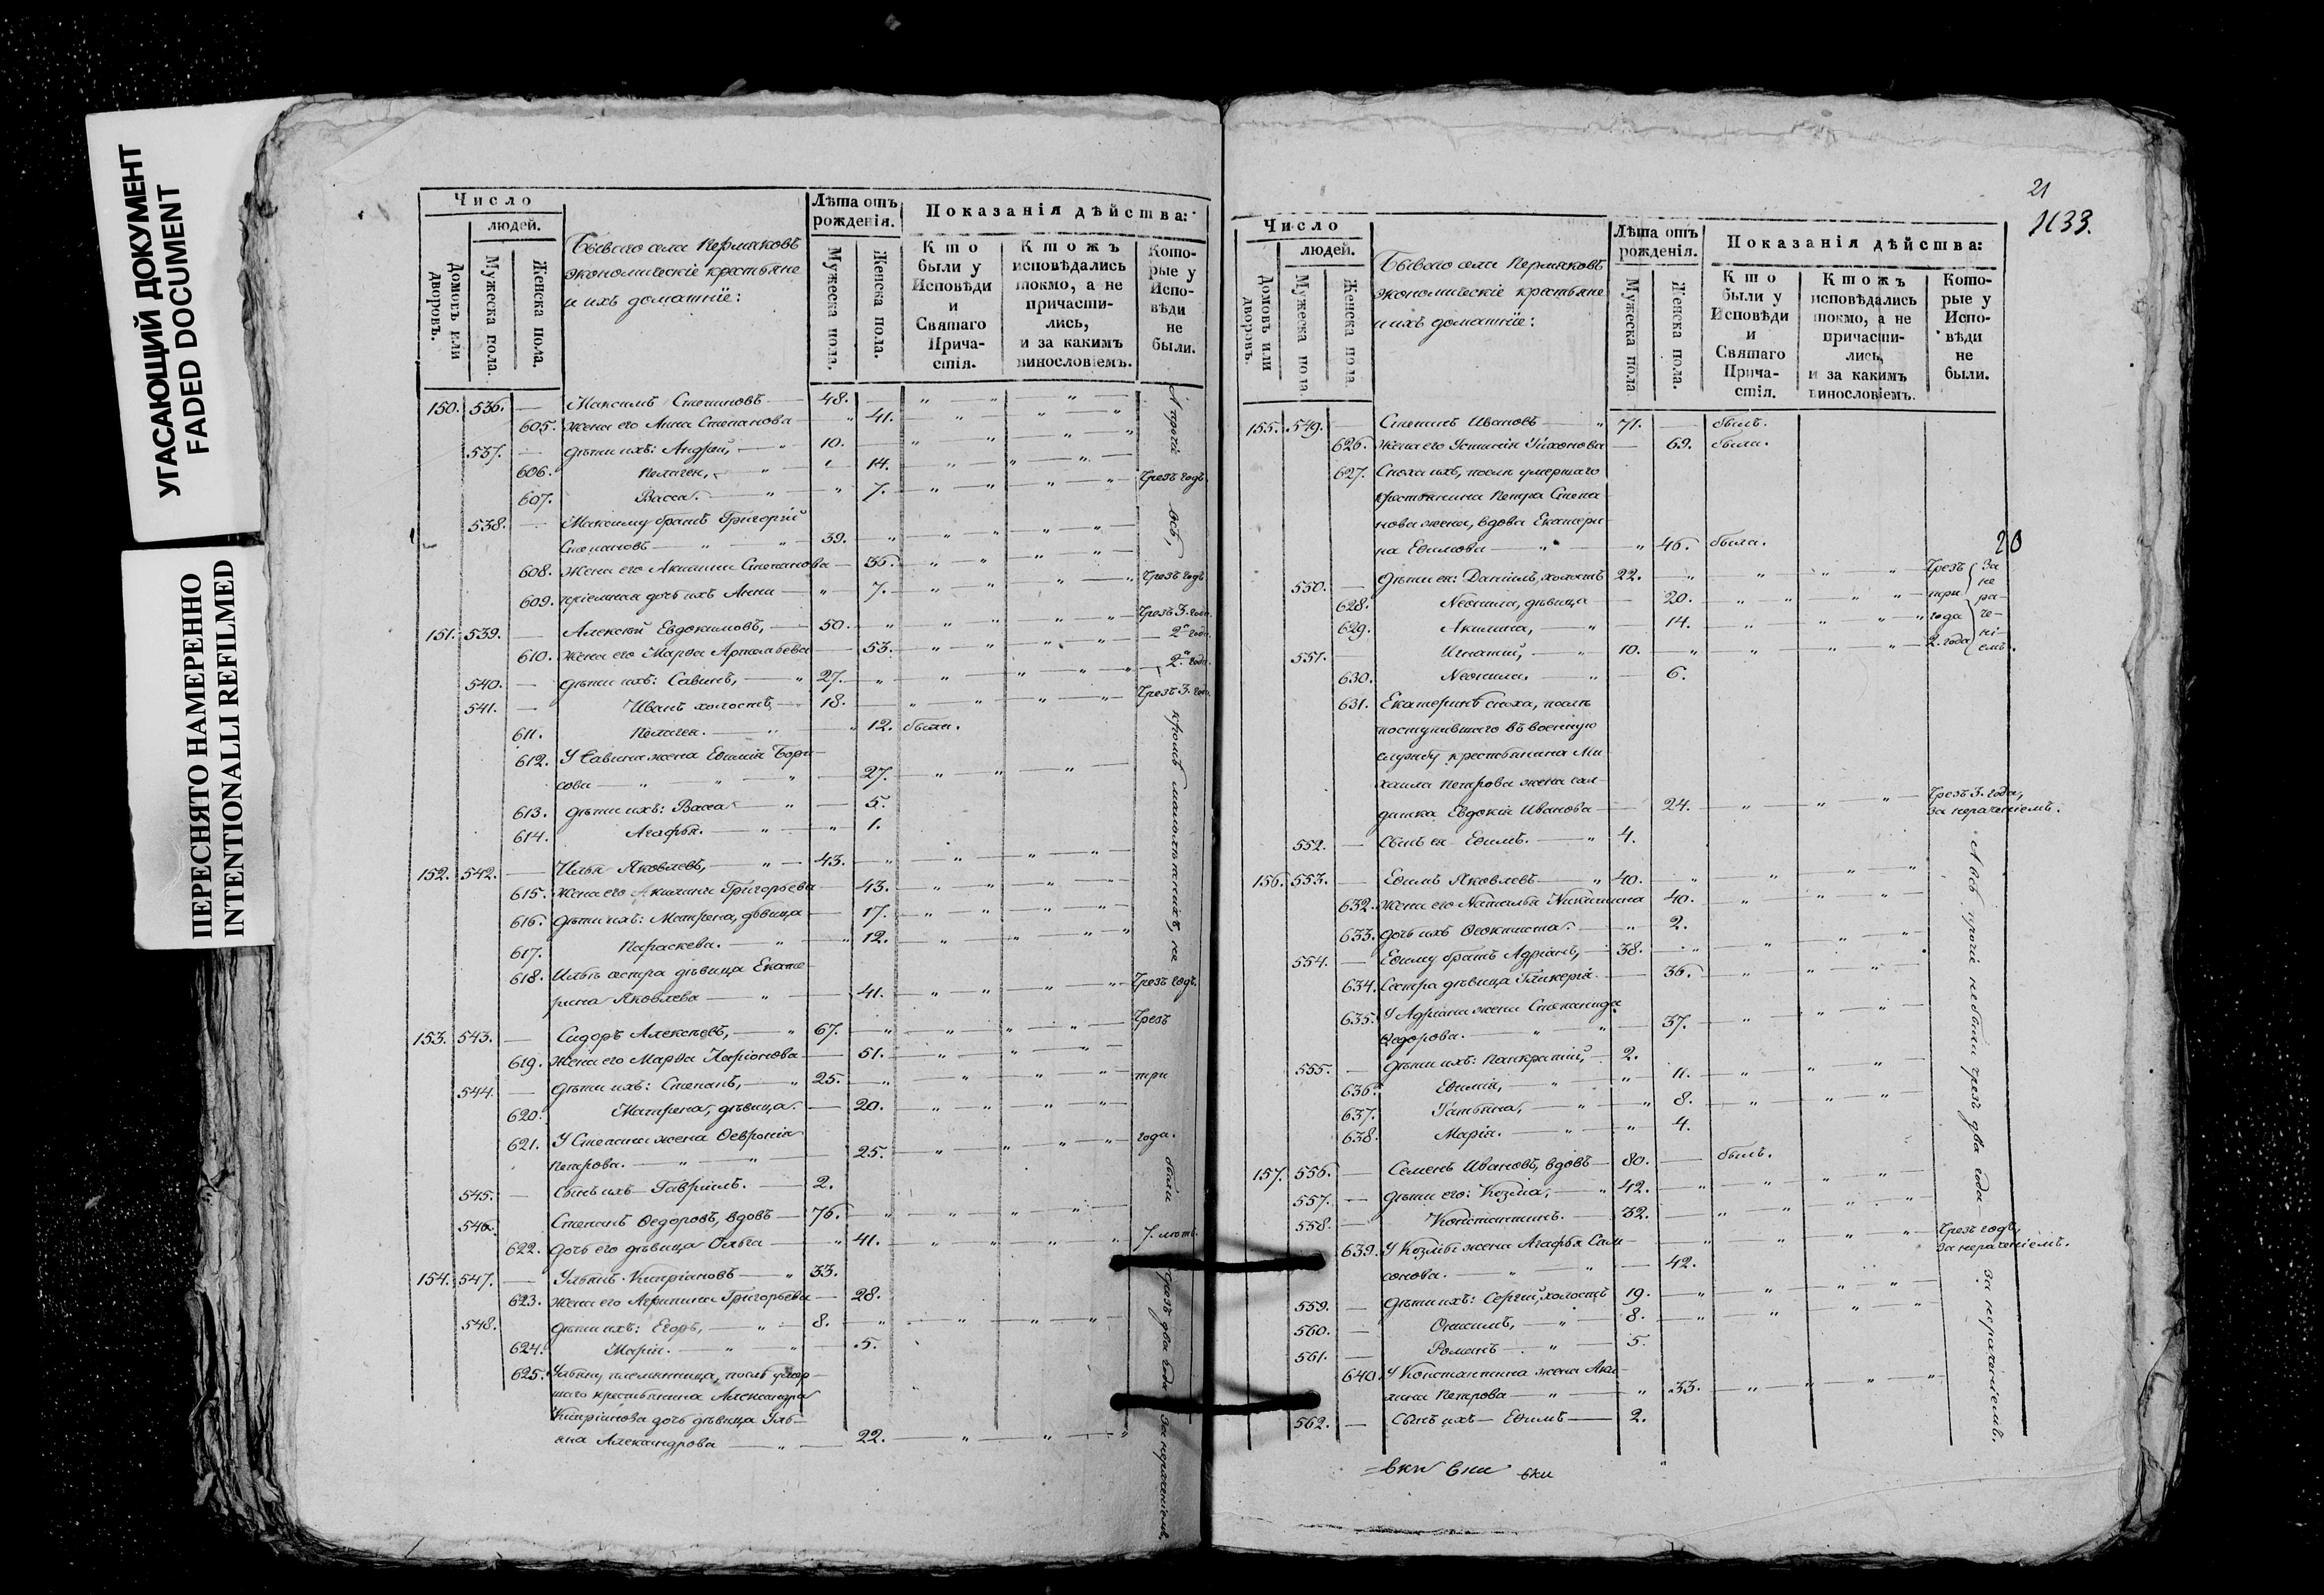 УГАСАЮЩИЙ ДОКУМЕНТ
FADED DOCUMENT
ПЕРЕСНЯТО НАМЕРЕННО
INTENTIONALLI REFILMED
Число
людей.
Домовъ или дворовъ.
Мужеска пола.
Женска пола.
Бывшаго села Пермяковъ
экономическіе крестьяне
и ихъ домашніе:
Лѣта отъ рожденія.
Мужеска пола.
Женска пола.
Показанія дѣйства:
Кто были у Исповѣди и Святаго Причастія.
Ктожъ исповѣдались токмо, а не причастились, и за какимъ винословіемъ.
Которые у Исповѣди не были.
150. 536. — Максимъ Степановъ 48.
605. Жена его Анна Степанова 41.
537. — дѣти ихъ: Андрей, 10.
606. Пелагея, 14.
607. Васса. 7. Чрезъ годъ
538. — Максиму братъ Григорій
Степановъ 39.
608. Жена его Акилина Степанова 36.
609. пріемная дочь ихъ Анна 7. Чрезъ годъ
151. 539. — Алексѣй Евдокимовъ, 50. Чрезъ 3. года
610. Жена его Марѳа Артемьева 53. 2 года
540. — дѣти ихъ: Савинъ, 27. 2 года.
541. — Иванъ холостъ 18. Чрезъ 3. года
611. Пелагея. 12. была.
612. У Савина жена Евѳимія Бори-
сова 27.
613. дѣти ихъ: Васса 5.
614. Агафья. 1.
152. 542. — Илья Яковлевъ, 43.
615. Жена его Акилина Григорьева 43.
616. дѣти ихъ: Матрена, дѣвица 17.
617. Параскева. 12.
618. Ильѣ сестра дѣвица Екате-
рина Яковлева 41. Чрезъ годъ.
153. 543. — Сидоръ Алексѣевъ, 67. Чрезъ
619. Жена его Марѳа Иларіонова 51.
544. — дѣти ихъ: Степанъ, 25. три
620. Матрена, дѣвица. 20.
621. У Степана жена Ѳевронія
Петрова. 25. года.
545. — Сынъ ихъ Гавріилъ. 2.
546. Степанъ Ѳедоровъ, вдовъ 76.
622. дочь его дѣвица Ольга 41. 7. лѣтъ
154. 547. — Ульянъ Кипріановъ 33.
623. Жена его Агрипина Григорьева 28.
548. дѣти ихъ: Егоръ, 8.
624. Марія. 5.
625. Ульяну племянница, послѣ умер-
шаго крестьянина Александра
Кипріанова дочь дѣвица Улья-
на Александрова 22.
А прочіе всѣ, кромѣ малолѣтнихъ, не были чрезъ два года за нераченіемъ.
21
1133.
Число
людей.
Домовъ или дворовъ.
Мужеска пола.
Женска пола.
Бывшаго села Пермяковъ
экономическіе крестьяне
и ихъ домашніе:
Лѣта отъ рожденія.
Мужеска пола
Женска пола.
Показанія дѣйства:
Кто были у Исповѣди и Святаго Причастія.
Ктожъ исповѣдались токмо, а не причастились, и за какимъ винословіемъ.
Которые у Исповѣди не были.
155. 549. Степанъ Ивановъ 71. — былъ.
626. Жена его Устинія Тихонова 69. была.
627. Сноха ихъ, послѣ умершаго
крестьянина Петра Степа-
нова жена, вдова Екатери-
на Евѳимова 46. была.
20
550. — дѣти ея: Даніилъ, холостъ 22. Чрезъ
628. Неонила, дѣвица 20. три
629. Акилина, 14. года
551. Игнатій, 10. 2. года
За не ра- че- ні- емъ.
630. Неонила. 6.
631. Екатеринѣ сноха, послѣ
поступившаго въ военную
службу крестьянина Ми-
хаила Петрова жена сол-
датка Евдокія Иванова 24. Чрезъ 3. года,
за нераченіемъ.
552. — Сынъ ея Евѳимъ. 4.
156. 553. — Евѳимъ Яковлевъ 40.
632. Жена его Наталья Никитина 40.
633. дочь ихъ Ѳеоктиста. 2.
554. — Евѳиму братъ Адріанъ, 38.
634. Сестра дѣвица Гликерія. 36.
635. У Адріана жена Степанида
Ѳедорова. 37.
555. — дѣти ихъ: Панкратій, 2.
636. Евѳимія, 11.
637. Татьяна, 8.
638. Марія. 4.
157. 556. — Семенъ Ивановъ, вдовъ 80. — былъ.
557. — дѣти его: Козма, 42.
558. — Константинъ. 32.
639. У Козмы жена Агафья Сам-
сонова. 42. Чрезъ годъ,
за нераченіемъ.
559. — дѣти ихъ: Сергій, холостъ 19.
560. — Онисимъ, 8.
561. — Романъ 5.
640. У Константина жена Аки-
лина Петрова 33.
562. — Сынъ ихъ Евѳимъ 2.
А всѣ прочіе небыли чрезъ два года за нераченіемъ.